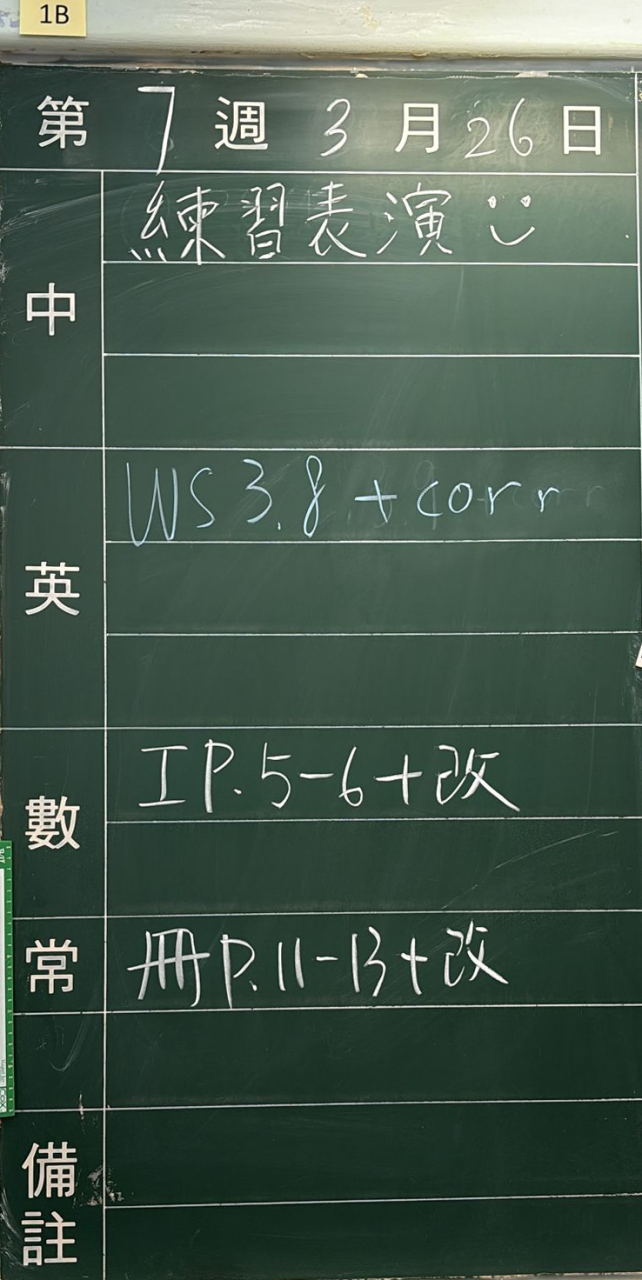 1B
第 7 週 3 月 26 日
中 練習表演
英 WS 3.8 + corr
數 工 P.5-6+改
常 冊 P.11-13+改
備註